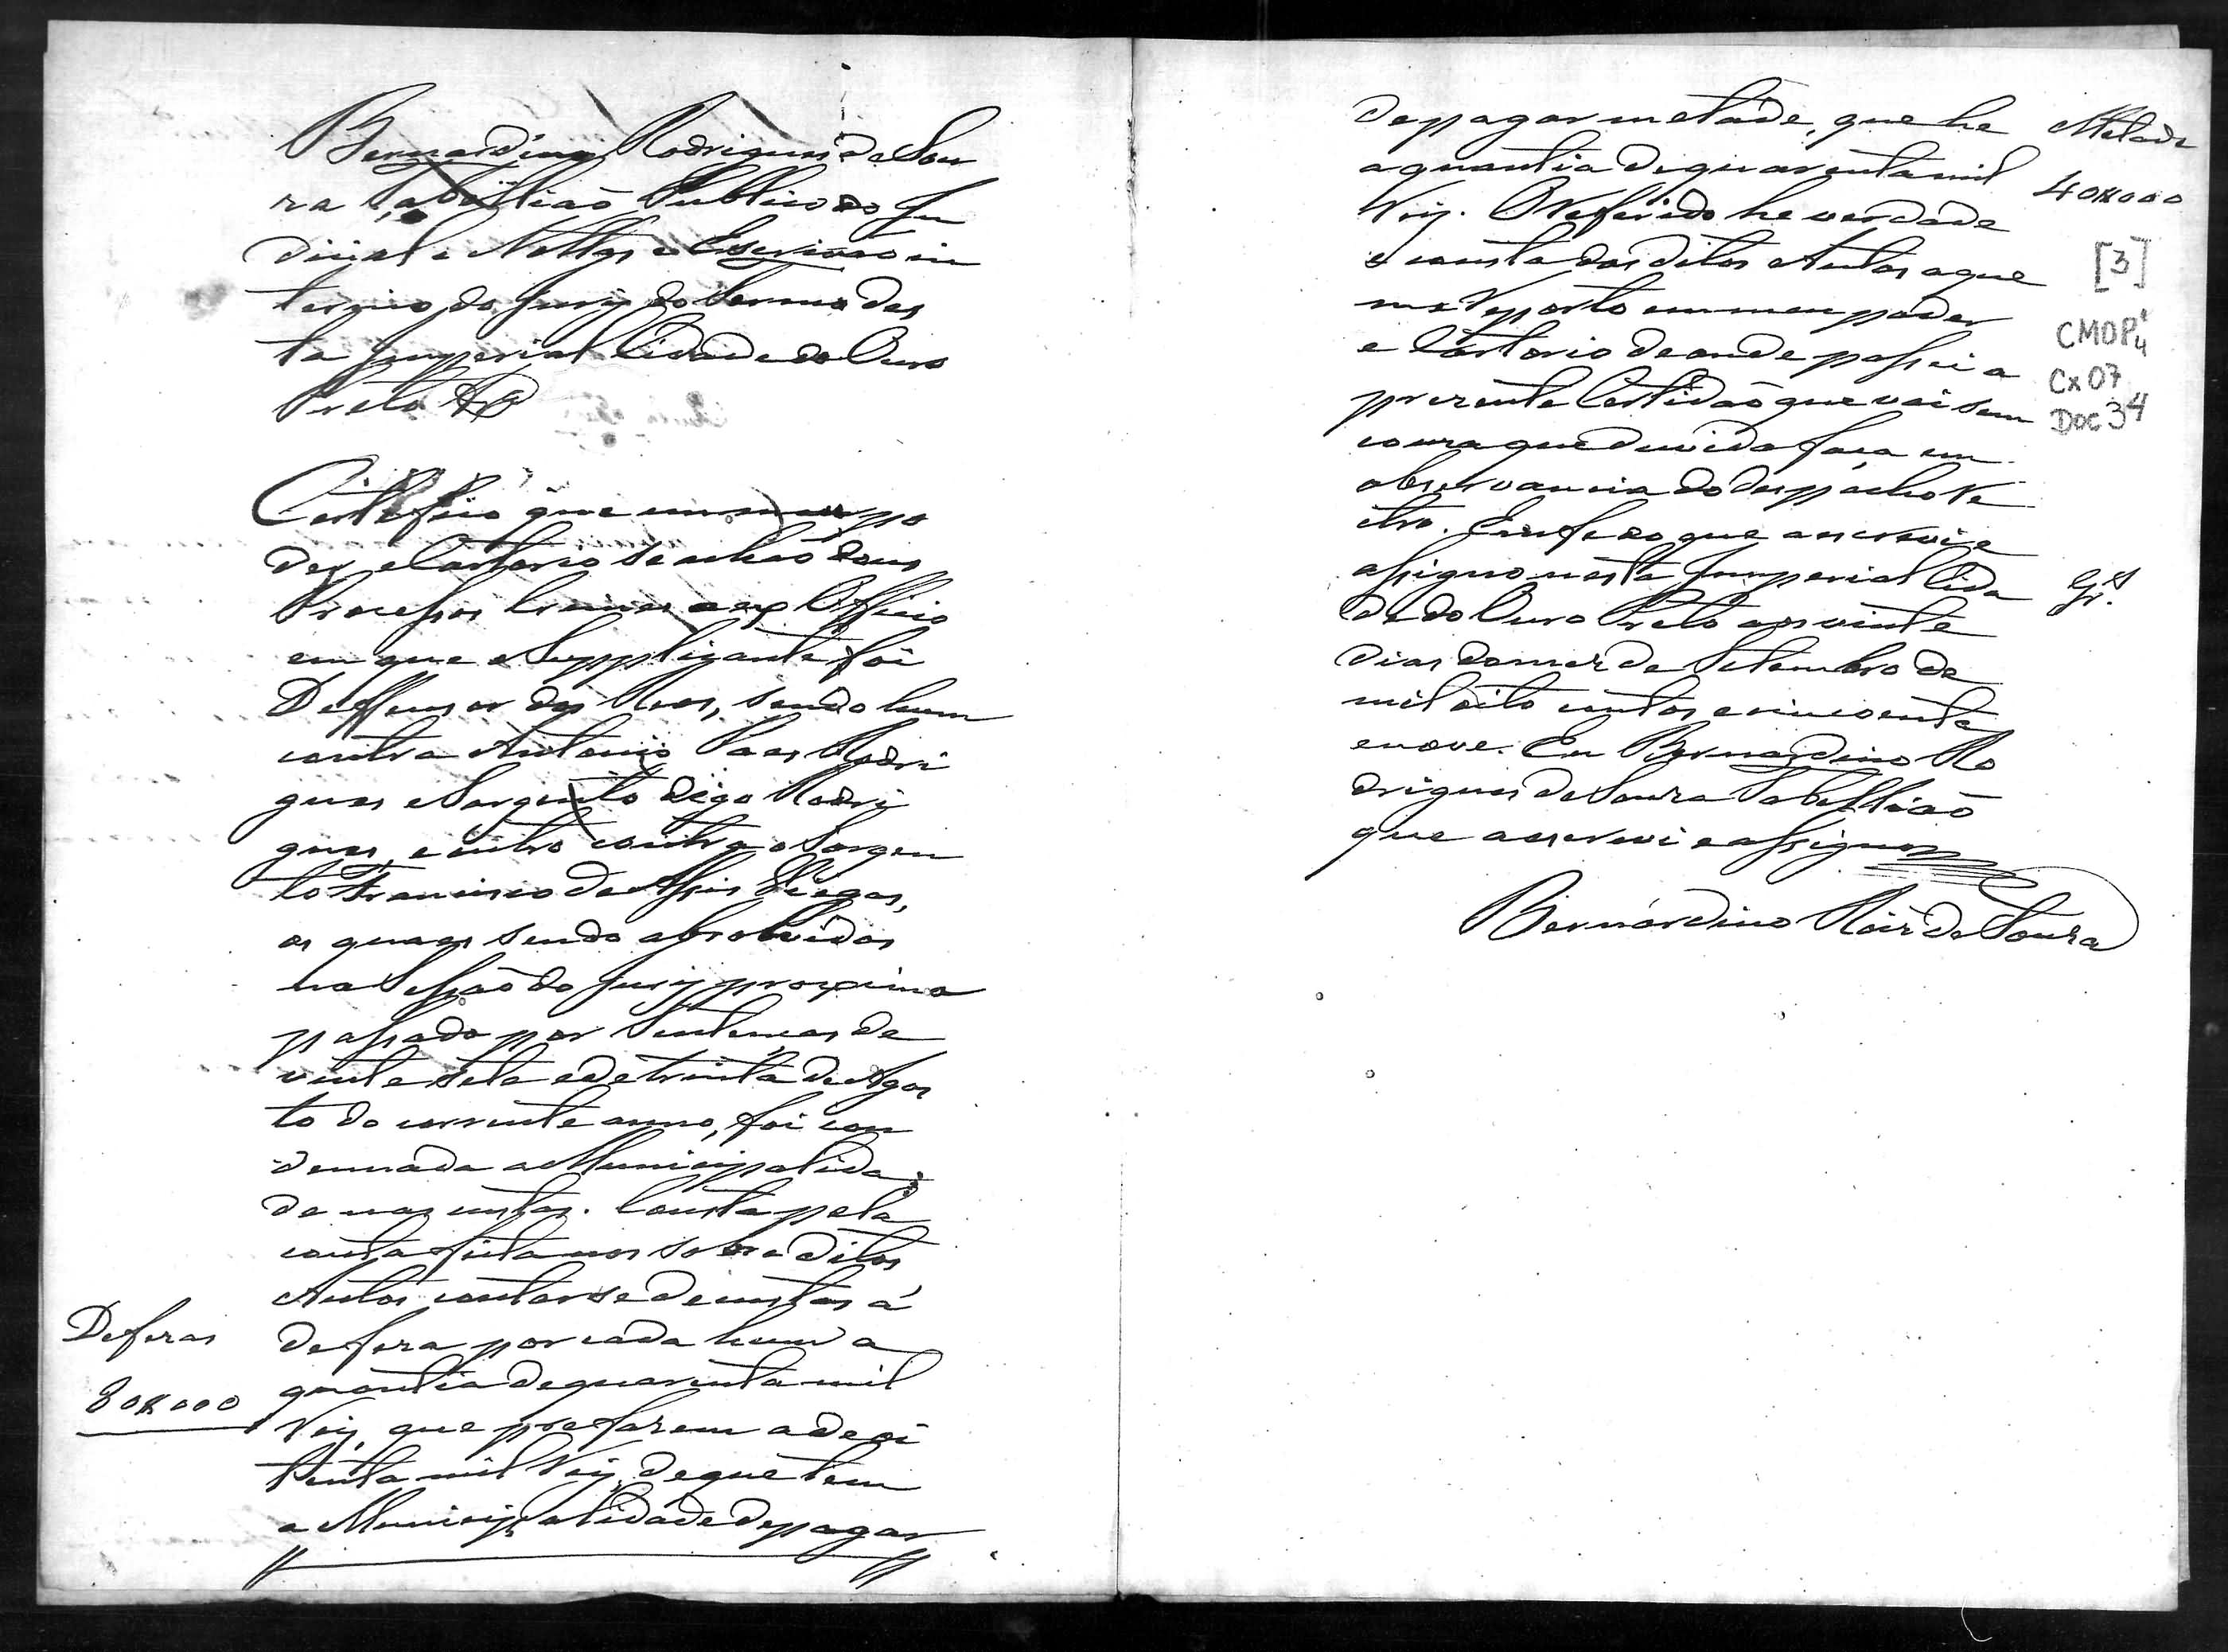 Bernardino Rodrigues de Sou
za Tabellião Publico do Ju
dicial e Nottas e Escrivão in
terino do Jury do Termo des
ta Imperial Cidade do Ouro
Preto &
Certefico que em meu po
der e Cartorio se achão dous
Processos Crimes ex Officio
em que o Supplicante foi
Deffensor dos Reos, sendo hum
contra Antonio Paes Rodri
gues e Sargento Diogo Rodri
gues, e outro contra o Sargen
to Francisco de Assis Viegas,
os quaes sendo absolvidos
na Sessão do Jury proximo
passado por Sentenças de
vinte sete e de trinta de Agos
to do corrente anno, foi con
demnada a Municipalida
de nas custas. Consta pela
conta feita nos sobreditos
Autos contarse de custas á
defeza por cada hum a
Defezas
quantia de quarenta mil
80$000
reis, que prefazem a de oi
tenta mil reis, de que tem
a Municipalidade de pagar
de pagar metade, que he
Metade
a quantia de quarenta mil
40$000
reis. O referido he verdade
e consta dos ditos Autos a que
[3]
me reporto em meu poder
CMOP
e Cartorio de onde passei a
Cx 07
prezente Certidão que vai sem
DOC 34
couza que duvida faça em
observancia do despacho re
tro. Em fé do que a escrevi e
assigno nesta Imperial Cida
Gr.s
de do Ouro Preto aos vinte
dias do mez de Setembro de
mil oito centos e cincoenta
e nove. Eu Bernardino Ro
drigues de Souza Tabellião
que a escrevi e assigno
Bernardino Roiz de Souza